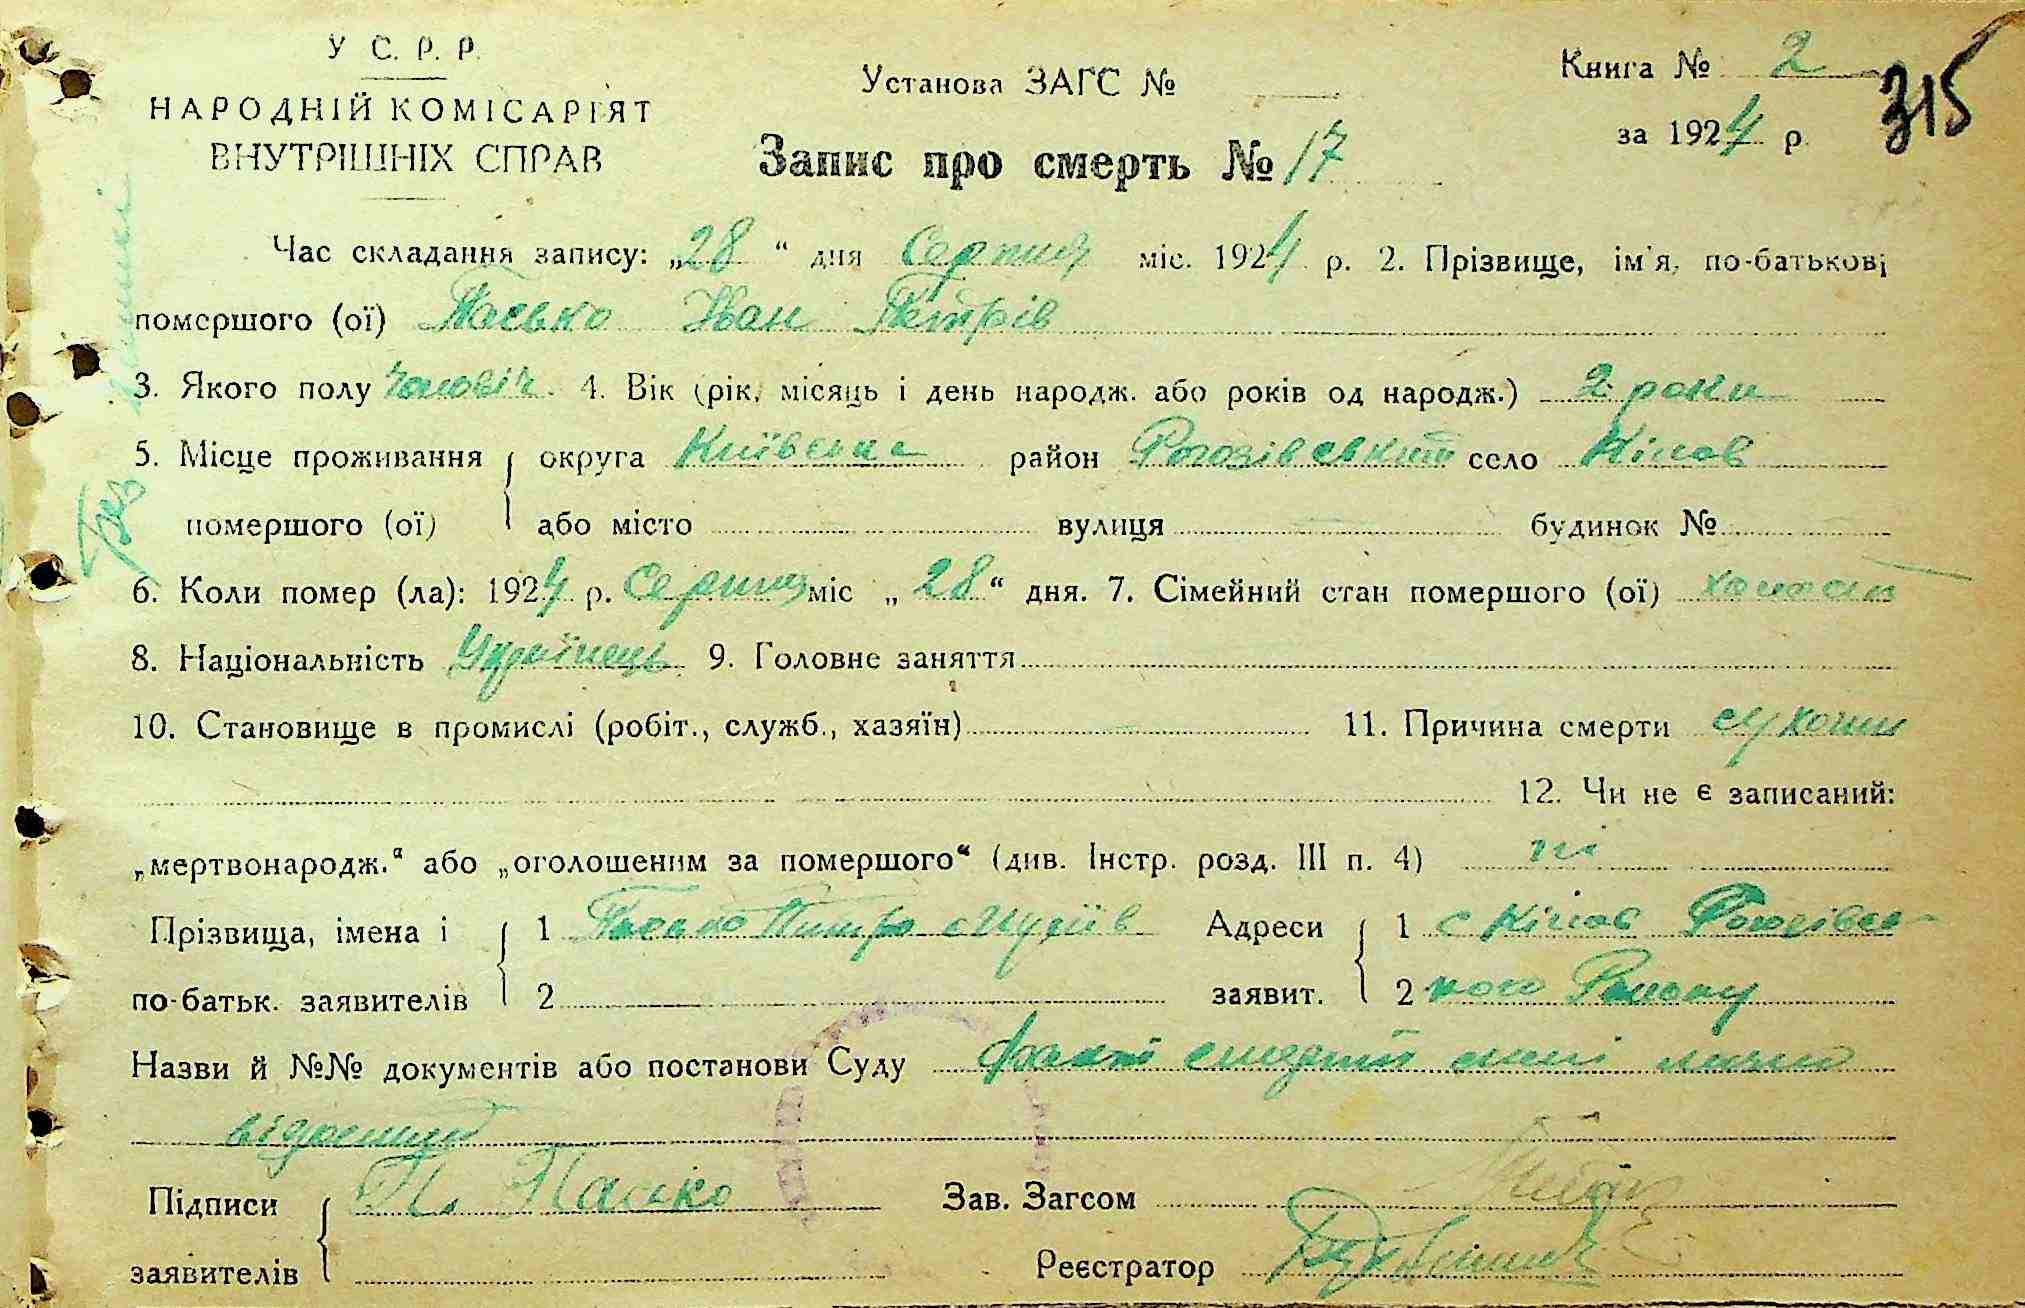 У С. Р. Р.
НАРОДНІЙ КОМІСАРІЯТ
ВНУТРІШНІХ СПРАВ
Установа ЗАГС №
Книга № 2
за 1924 р.
315
Запис про смерть № 17
Час складання запису: „28“ дня Серпня міс. 1924 р. 2. Прізвище, ім'я, по-батькові
помершого (ої) Пасько Иван Петрів
3. Якого полу чоловіч. 4. Вік (рік, місяць і день народж. або років од народж.) 2 роки
5. Місце проживання округа Київська район Рогозівський село Кійлов
помершого (ої) або місто вулиця будинок №
6. Коли помер (ла): 1924 р. Серпня міс „28“ дня. 7. Сімейний стан помершого (ої) холост
8. Національність Українець 9. Головне заняття
10. Становище в промислі (робіт., служб., хазяїн) 11. Причина смерти сухоти
12. Чи не є записаний:
„мертвонародж.“ або „оголошеним за помершого“ (див. Інстр. розд. III п. 4) ні
Прізвища, імена і 1 Пасько Петро Адреси 1 с Кійлов Рогозівсь-
по-батьк. заявителів 2 заявит. 2 кого Району
Назви й №№ документів або постанови Суду факт смерти мені
відомий
Підписи П. Пасько Зав. Загсом
заявителів Реєстратор